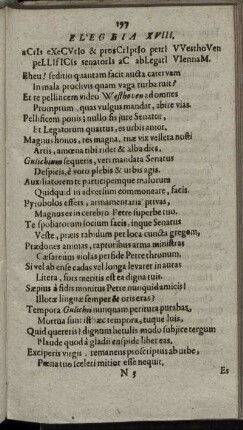 197
ELEGEIA XVIII.
aCtIs eXeCVtIo & prosCrIptIo petrI VVesthoVen
peLLIfICIs senatorIs aC abLegatI VIennaM.
Eheu! seditio quantam facit aucta catervam
In mala proclivis quam vaga turba ruit?
Et te pellificem video Westhoven ad omnes
Promptum, quas vulgus mandat, abire vias.
Pellificem ponis; nullo sis jure Senator,
Et Legatorum quartus, es urbis amor,
Magnus honos, res magna, tuæ vix velleta nosti
Artis, amœna tibi ridet & alba dici.
Gulichium sequeris, veri mandata Senatus
Despicis, è voro plebis & urbis agis.
Auxiliatorem te participemque malorum
Quidquid in adversum commoneare, facis.
Pyrobolos effers, armamentaria privas,
Magnus es in cerebro Petre superbe tuo.
Te spoliatorum socium facis, inque Senatus
Veste, præis rabidum per loca cuncta gregem,
Prædones animas, raptoribus arma ministras
Cæsareum violas perfide Petre thronum.
Si vel ab ense cadas vel longa levaret in auras
Litera, fors meritis est ea digna tuis.
Sæpius à fidis monitus Petre nunquid amicis!
Illotæ linguæ semper & oris eras?
Tempora Gulichii nunquam peritura putabas,
Mortua sunt isthæc tempora, tuque luis.
Quid quereris? dignum betulis modo subjice tergum
Plaude quod à gladii enspide liber eas.
Exciperis virgis, remanens proscriptus ab urbe,
Pœna tuo sceleri mitior esse nequit.
N 5
Es